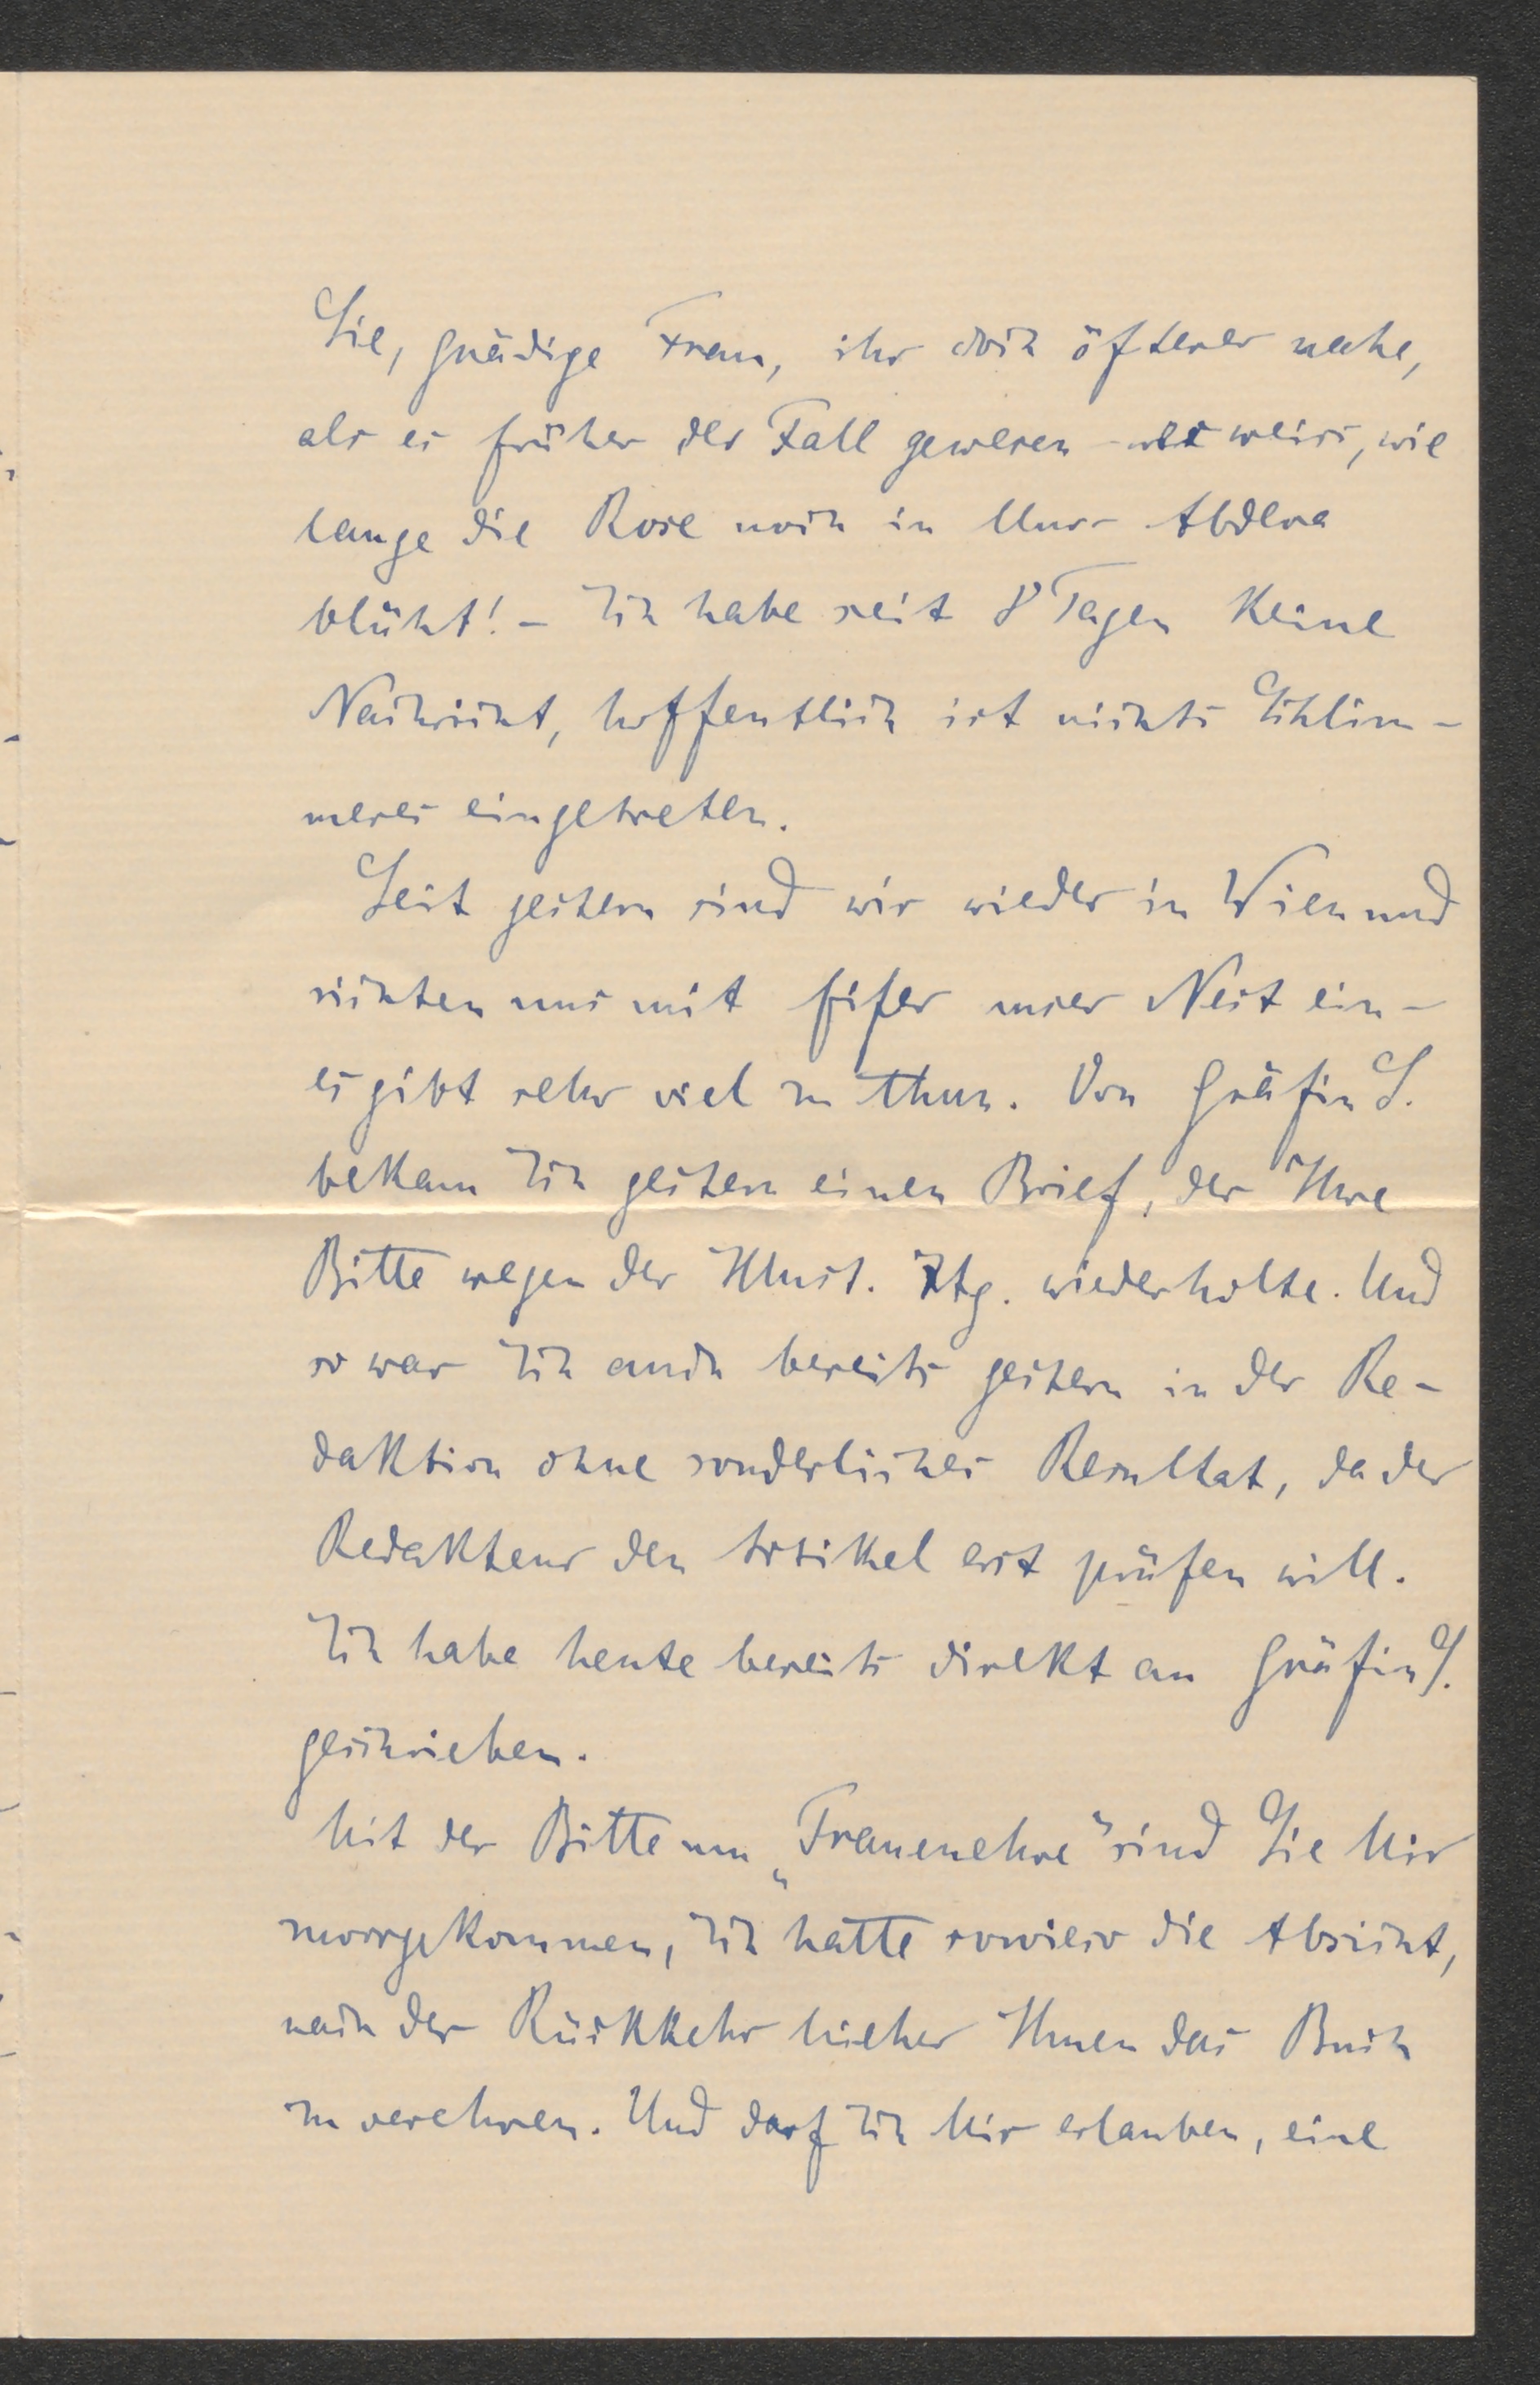 Sie, gnädige Frau, ihr doch öfterer nahe,
als es früher der Fall gewesen – wer weiss, wie
lange die Rose noch in Mur-Abdera
blüht! – Ich habe seit 8 Tagen keine
Nachricht, hoffentlich ist nichts Schlim-
meres eingetreten.
Seit gestern sind wir wieder in Wien und
richten uns mit Eifer unser Nest ein –
es gibt sehr viel zu thun. Von Gräfin S.
bekam Ich gestern einen Brief, der Ihre
Bitte wegen der Illust. Ztg. wiederholte. Und
so war Ich auch bereits gestern in der Re-
daktion ohne sonderliches Resultat, da der
Redakteur den Artikel erst prüfen will.
Ich habe heute bereits direkt an Gräfin S.
geschrieben.
Mit der Bitte um „Frauenehre“ sind Sie Mir
zuvorgekommen, Ich hatte sowieso die Absicht,
nach der Rückkehr hieher Ihnen das Buch
zu verehren. Und darf Ich Mir erlauben, eine